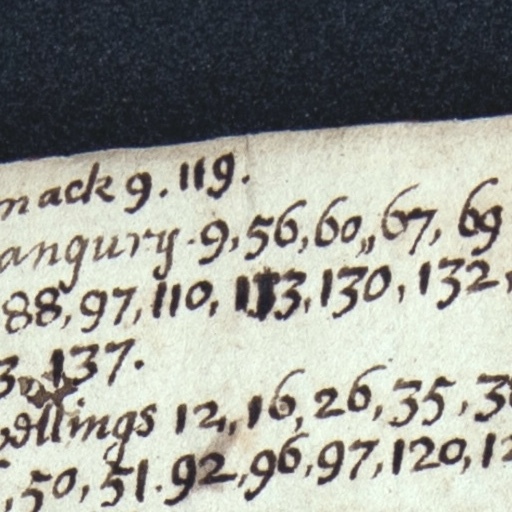 mack 9. 119.
angury. 9, 56, 60,, 67, 69
88, 97, 110, 113, 130, 132,
3, 137.
dlings 12,, 16, 26, 35, 3
, 50, 51. 92, 96, 97, 120, 12